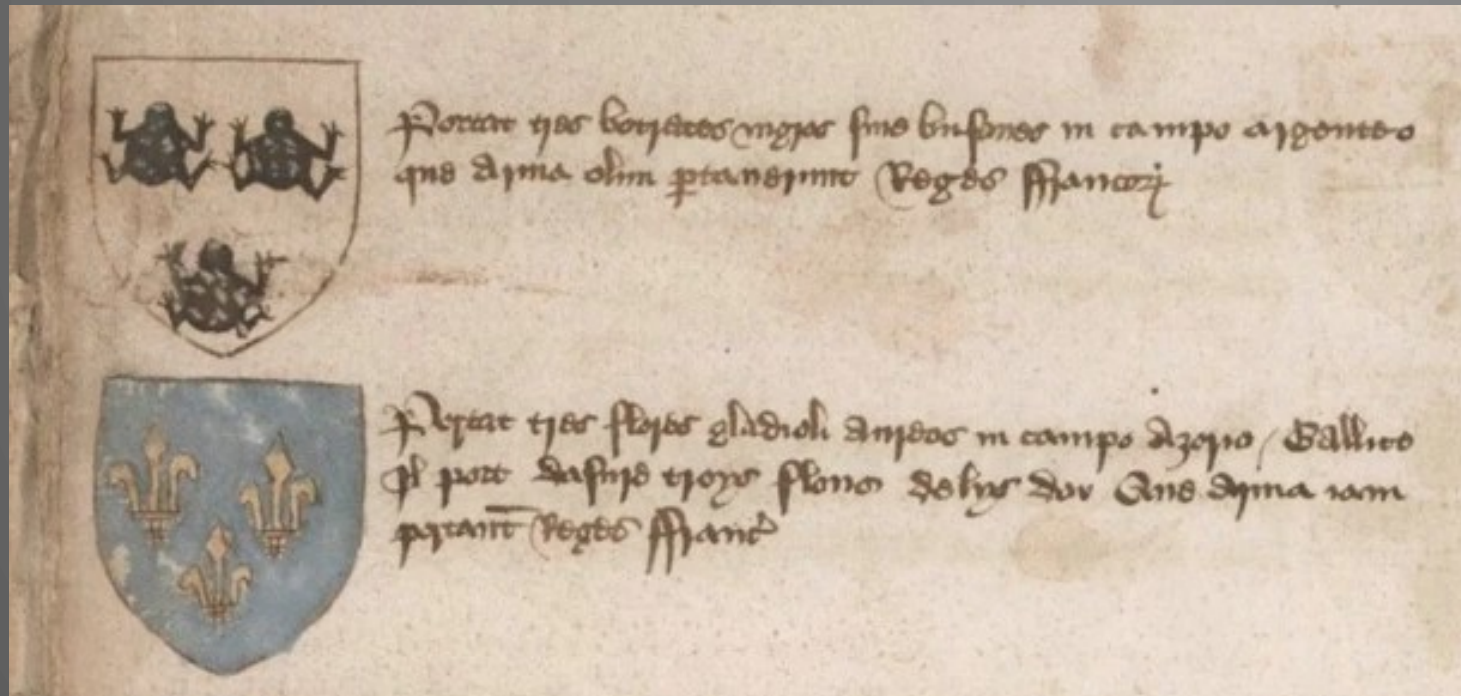 Portat tres botraces nigros sive bufones in campo argenteo
que arma olim portaverunt Reges ffrancorum
Portat tres flores gladioli aureos in campo azorio / Gallice
Il port dasure troys flours delys dor Que arma iam
portant Reges ffranc